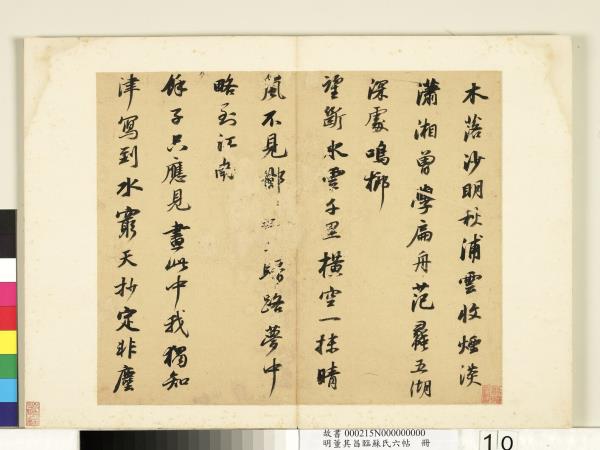 木落沙明秋浦雲收煙淡
瀟湘曾學扁舟范蠡五湖
深處鳴榔
望斷水雲千里橫空一抹晴
嵐不見歸路夢中
略到江南
餘子只應見畫此中我獨知
津寫到水窮天杪定非塵
故書 000215N000000000
明董其昌臨蘇氏六帖 冊
10